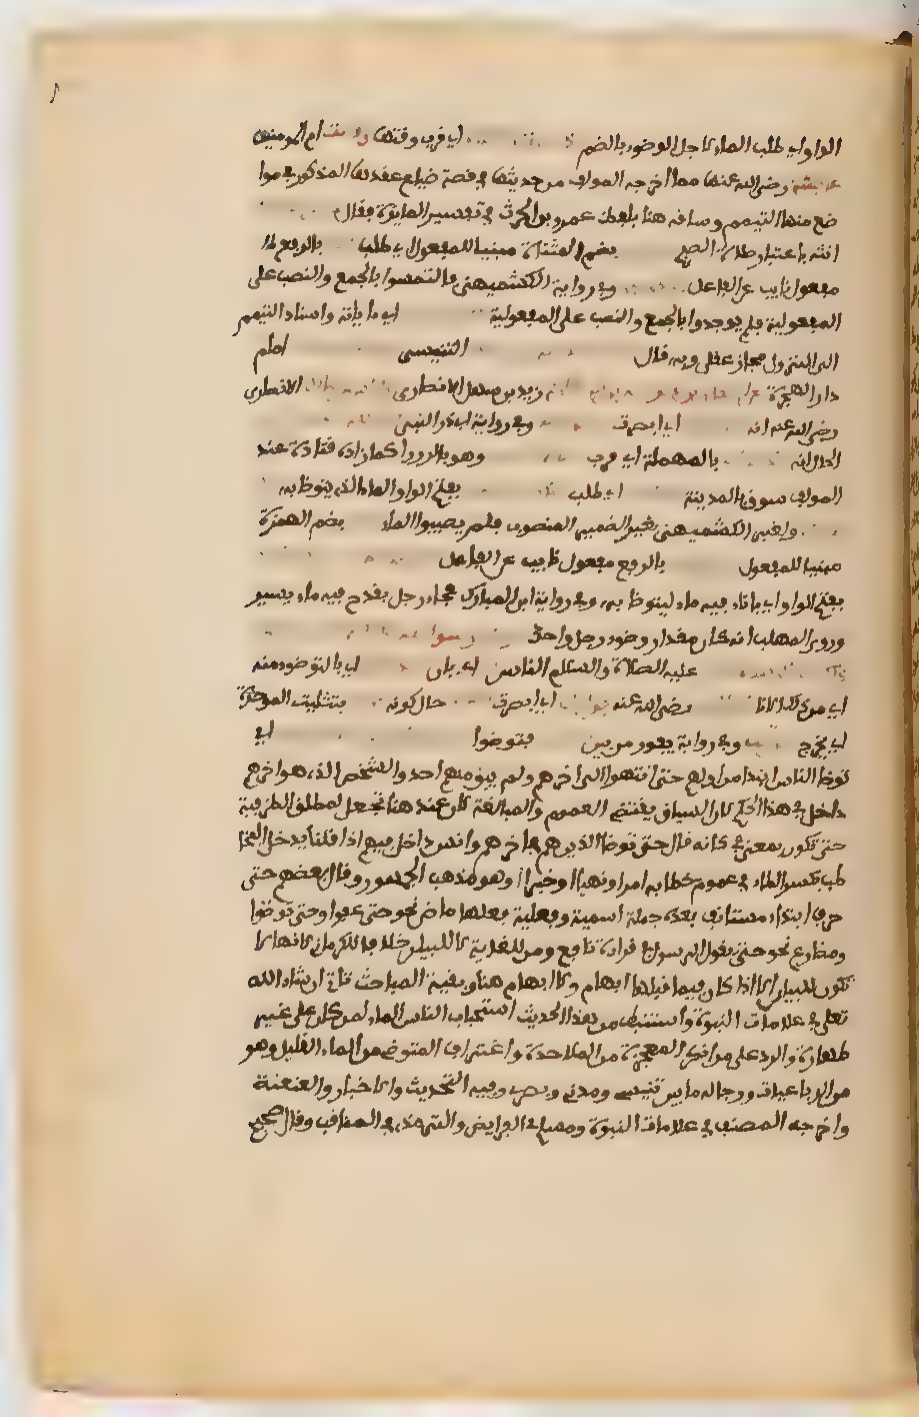 الواو اي طلب الماء لاجل الوضوء بالضم اي قرب وقتها ام المومنين
عايشة رضي الله عنها مما اخرجه المولف من حديثها في قصة ضياع عقدها المذكور في موا
ضع منها التيمم وساقه هنا بلفظ عمرو بن الحرث في تفسير المايدة فقال
انثه باعتبار صلاة الصبح بضم المثناة مبنيا للمفعول اي طلب بالرفع
مفعول نايب عن الفاعل وفي رواية الكشميهني فالتمسوا بالجمع والنصب على
المفعولية فلم يجدوا بالجمع والنصب على المفعولية اي ما ياته واسناد التيمم
الى النزول مجاز عقلي وبه قال التنيسي امام
دار الهجرة زيد بن سهل الانصاري الانصاري
رضي الله عنه انه اي ابصرت وفي رواية ابي ذر النبي
الحال انه بالمهملة اي قرب وهو بالزورا كما زاده قتادة عند
المولف سوق بالمدينة اي طلب بفتح الواو الماء الذي يتوضا به
ولغير الكشميهني بغير الضمير المنصوب فلم يصيبوا الماء بضم الهمزة
مبنيا للمفعول بالرفع مفعول نايب عن الفاعل
بفتح الواو اي باناء فيه ماء ليتوضا به وفي رواية ابن المبارك فجاء رجل بقدح فيه ماء يسير
وروى المهلب انه كان مقدار وضوء رجل واحد رسول
عليه الصلاة والسلام الناس اي بان اي بالتوضو منه
اي من ذلك الانا رضي الله عنه اي ابصرت حال كونه بتثليث الموحدة
اي يخرج وفي رواية يفور من بين فتوضوا اي
توضا الناس ابتدا من اولهم حتى انتهوا الى اخرهم ولم يبق منهم احد والشخص الذي هو اخرهم
داخل في هذا الحكم لان السياق يقتضي العموم والمبالغة لان عند هنا تجعل لمطلق الظرفية
حتى تكون بمعنى في كانه قال حتى توضا الذين هم في اخرهم وانس داخل فيهم اذا قلنا يدخل المخا
طب بكسر الطاء في عموم خطابه امرا او نهيا او خبرا وهو مذهب الجمهور وقال بعضهم حتى
حرف ابتداء مستانف بعده جملة اسمية وفعلية فعلها ماض نحو حتى عفوا وحتى توضوا
ومضارع نحو حتى يقول الرسول في قراءة نافع ومن للغاية لا للبيان خلافا للكرماني لانها لا
تكون للبيان الا اذا كان فيما قبلها ابهام ولا ابهام هنا وبقية المباحث تاتي ان شاء الله
تعلى في علامات النبوة واستنبط من هذا الحديث استحباب التماس الماء لمن كان على غير
طهارة والرد على من انكر المعجزة من الملاحدة واغتراف المتوضي من الماء القليل وهو
من الرباعيات ورجاله ما بين تنيسي ومدني وبصري وفيه التحديث والاخبار والعنعنة
واخرجه المصنف في علامات النبوة ومسلم في الفرايض والترمذي في المناقب وقال صحيح